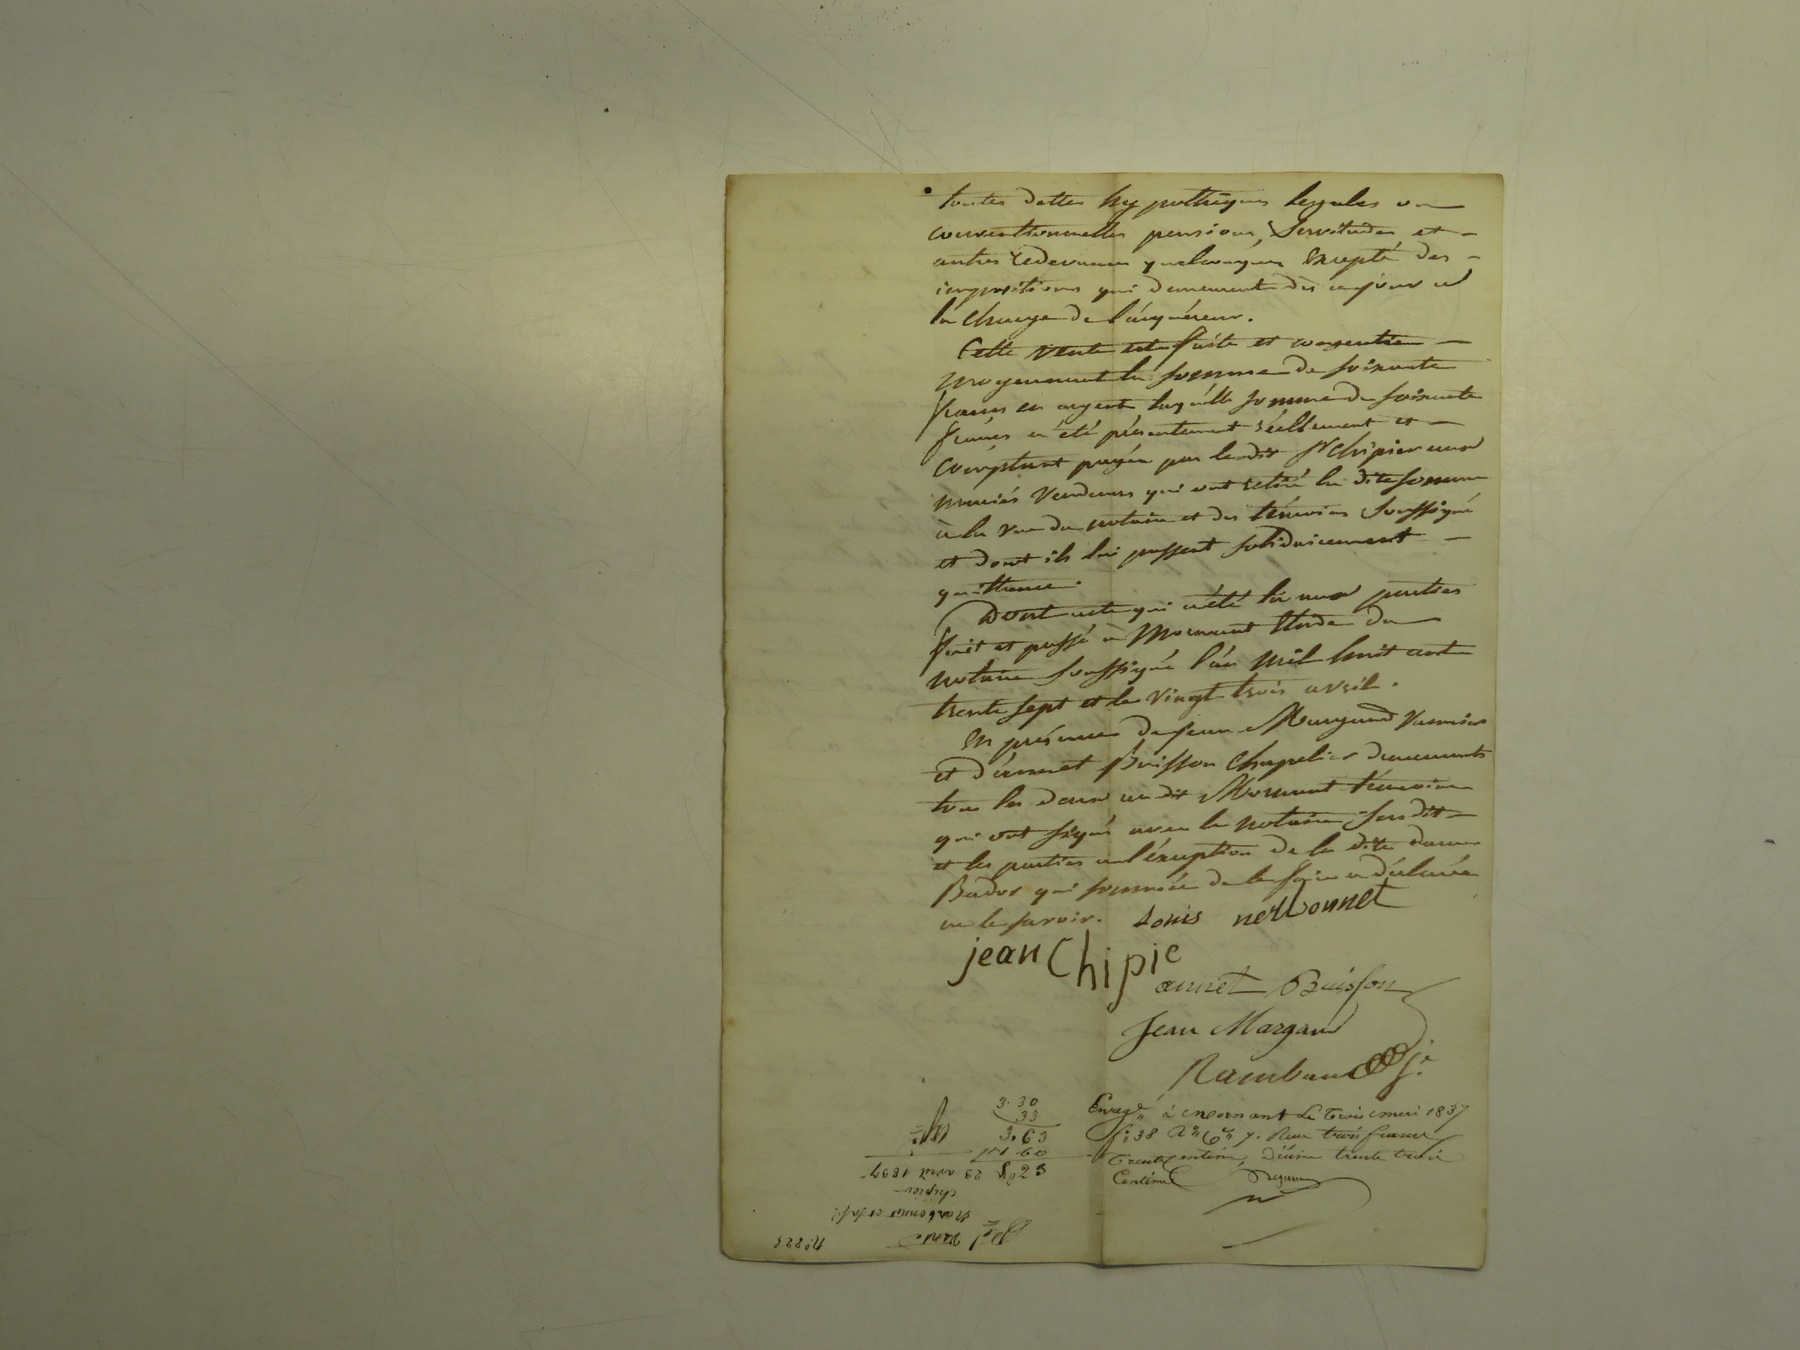 toutes dettes hypothèques legales ou
conventionnelles pensions, Servitudes et
autres redevances quelconques Excepté des
impositions qui demeurent dès cejour a
la Charge de l'aquéreur.
Cette vente est faite et consentie
moyennant la somme de soixante
francs en argent laquelle somme de soixante
francs a été présentement réellement et
comptant payée par le dit Sr Chipier aux
mariés Vendeurs qui ont retiré la dite somme
à la vue du notaire et des témoins soussigné
et dont ils lui passent solidairement
quittance.
Dont acte qui a été lu aux parties
fait et passé à Mornant Etude du
notaire soussigné l'an mil huit cent
trente sept et le vingt trois avril.
En présence de jean Margand
et d'annet Buisson Chapelier demeurants
tous les deux au dit Mornant témoins
qui ont signé avec le notaire susdit
et les parties a l'exception de la dite dame
Bador qui sommée de le faire a déclarée
ne le savoir. Louis nerbonnet
jean Chipie
annet Buisson
Jean Margand
Rambaud
3.30
33
3.63
1.60
5 23
Enregé à mornant le trois mai 1837
f° 38 Ro Ce 7. Reçu trois francs
trente centime, décime trente trois
Centime
23 avril 1837
Chipier
Narbonnet et sa fe
Vente
N° 225